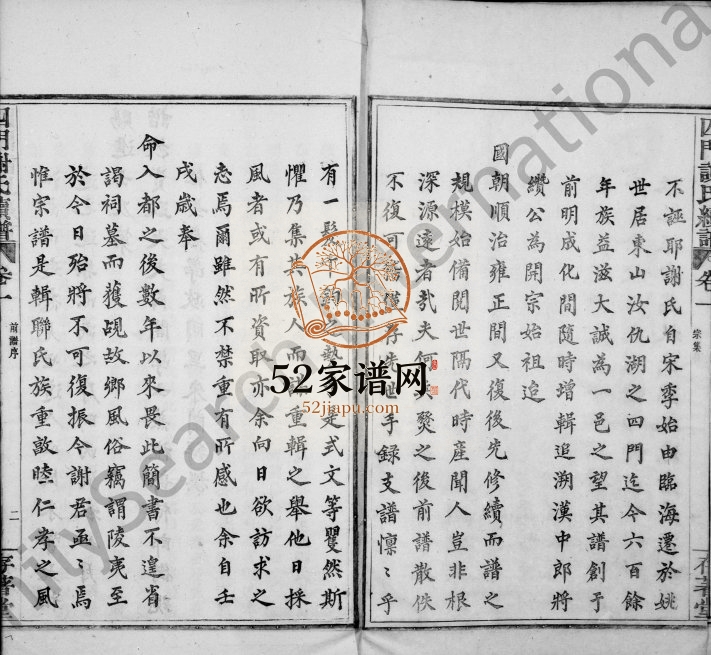 不誣耶謝氏自宋季始由臨海遷於姚
世居東山汝仇湖之四門迄今六百餘
年族益滋大誠為一邑之望其譜創于
前明成化間隨時增輯追溯漢中郎將
纘公為開宗始祖迨
國朝順治雍正間又復後先修續而譜之
規模始備閱世隔代時產聞人豈非根
深源遠者哉夫何 燹之後前譜散佚
不復可 僅存 世手錄支譜懍懍乎
有一髮千鈞 勢 是式文等瞿然斯
懼乃集其族人而 重輯之舉他日採
風者或有所資取亦余向日欲訪求之
志焉爾雖然不禁重有所感也余自壬
戌歲奉
命入都之後數年以來畏此簡書不遑省
謁祠墓而獲覘故鄉風俗竊謂陵夷至
於今日殆將不可復振今謝君亟亟焉
惟宗譜是輯聯氏族重敦睦仁孝之風
四門謝氏續譜 卷一
宗集
存著堂
四門謝氏續譜 卷一
前譜序
二
存著堂
52家谱网
52jiapu.com
Search International